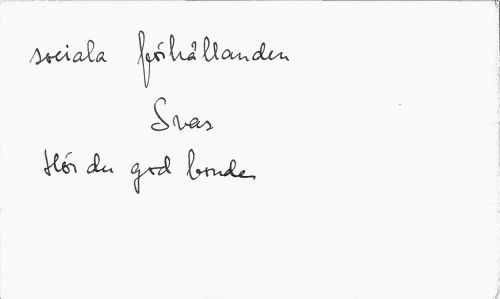 sociala förhållanden
Svas
Hör du god bonde